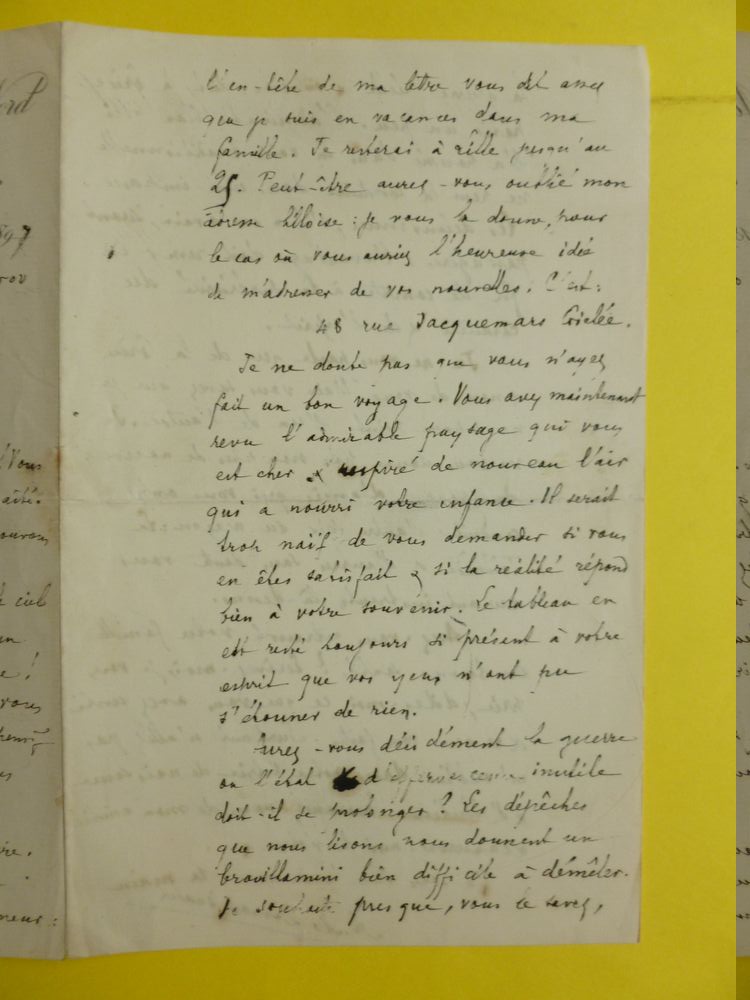 l'en-tête de ma lettre vous dit assez
que je suis en vacances dans ma
famille. Je resterai à Lille jusqu'au
25. Peut-être aurez-vous oublié mon
adresse lilloise : je vous la donne, pour
le cas où vous auriez l'heureuse idée
de m'adresser de vos nouvelles. C'est :
48 rue Jacquemars Giélée.
Je ne doute pas que vous n'ayez
fait un bon voyage. Vous avez maintenant
revu l'admirable paysage qui vous
est cher & respiré de nouveau l'air
qui a nourri votre enfance. Il serait
trop naïf de vous demander si vous
en êtes satisfait & si la réalité répond
bien à votre souvenir. Le tableau en
est resté toujours si présent à votre
esprit que vos yeux n'ont pu
s'étonner de rien.
Aurez-vous décidément la guerre
ou l'état d'effervescence inutile
doit-il se prolonger ? Les dépêches
que nous lisons nous donnent un
brouillamini bien difficile à démêler.
Je souhaite presque, vous le savez,